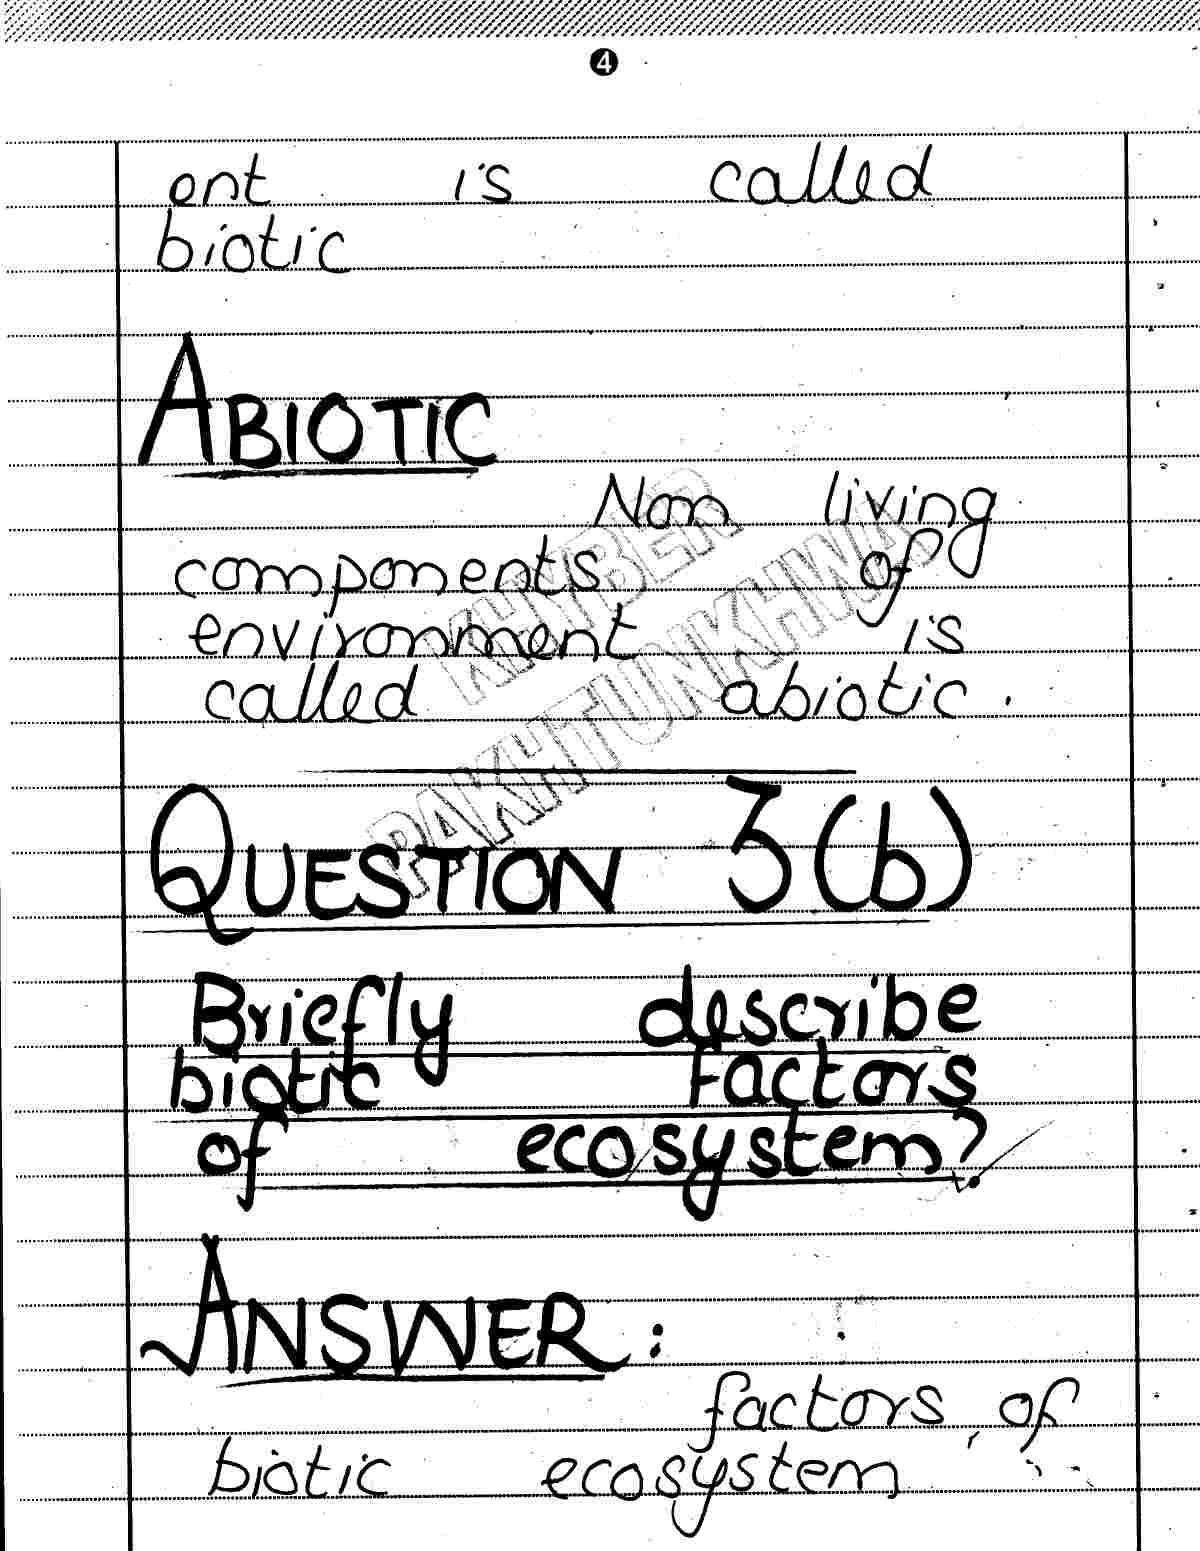 4
ent is called
biotic
ABIOTIC
Non living
components of
environment is
called abiotic.
KHYBER
PAKHTUNKHWA
QUESTION 3(b)
Briefly describe
biotic factors
of ecosystem?
ANSWER:
factors of
biotic ecosystem